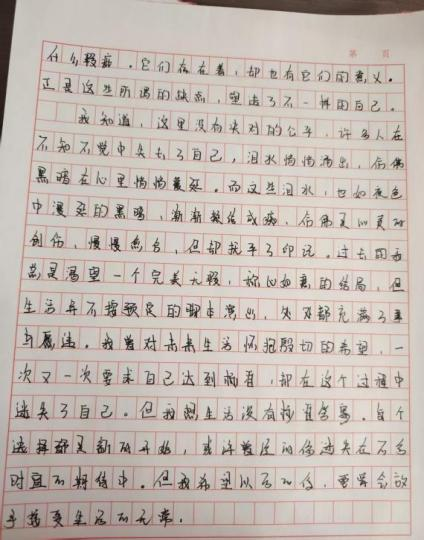 第 页
什么瑕疵。它们存在着，却也有它们的意义。
正是这些所谓的缺点，塑造了不一样的自己。
我知道，这里没有失对的公平，许多人在
不知不觉中失去了自己，泪水悄悄流出，仿佛
黑暗在心里悄悄蔓延。而这些泪水，也如夜色
中漫延的黑暗，渐渐凝结成痂，仿佛是心灵的
创伤，慢慢愈合，但却抚平了印记。过去的我
总是渴望一个完美无瑕，称心如意的结局，但
生活并不按预定的剧本演出，处处都充满了事
与愿违。我曾对未来生活怀抱殷切的希望，一
次又一次要求自己达到，却在这个过程中
迷失了自己。但我想生活没有标准答案。每个
选择都是新的开始，或许曾经的我迷失在不合
时宜的期待中。但我希望以后的我，要学会放
手接受生活的无常。